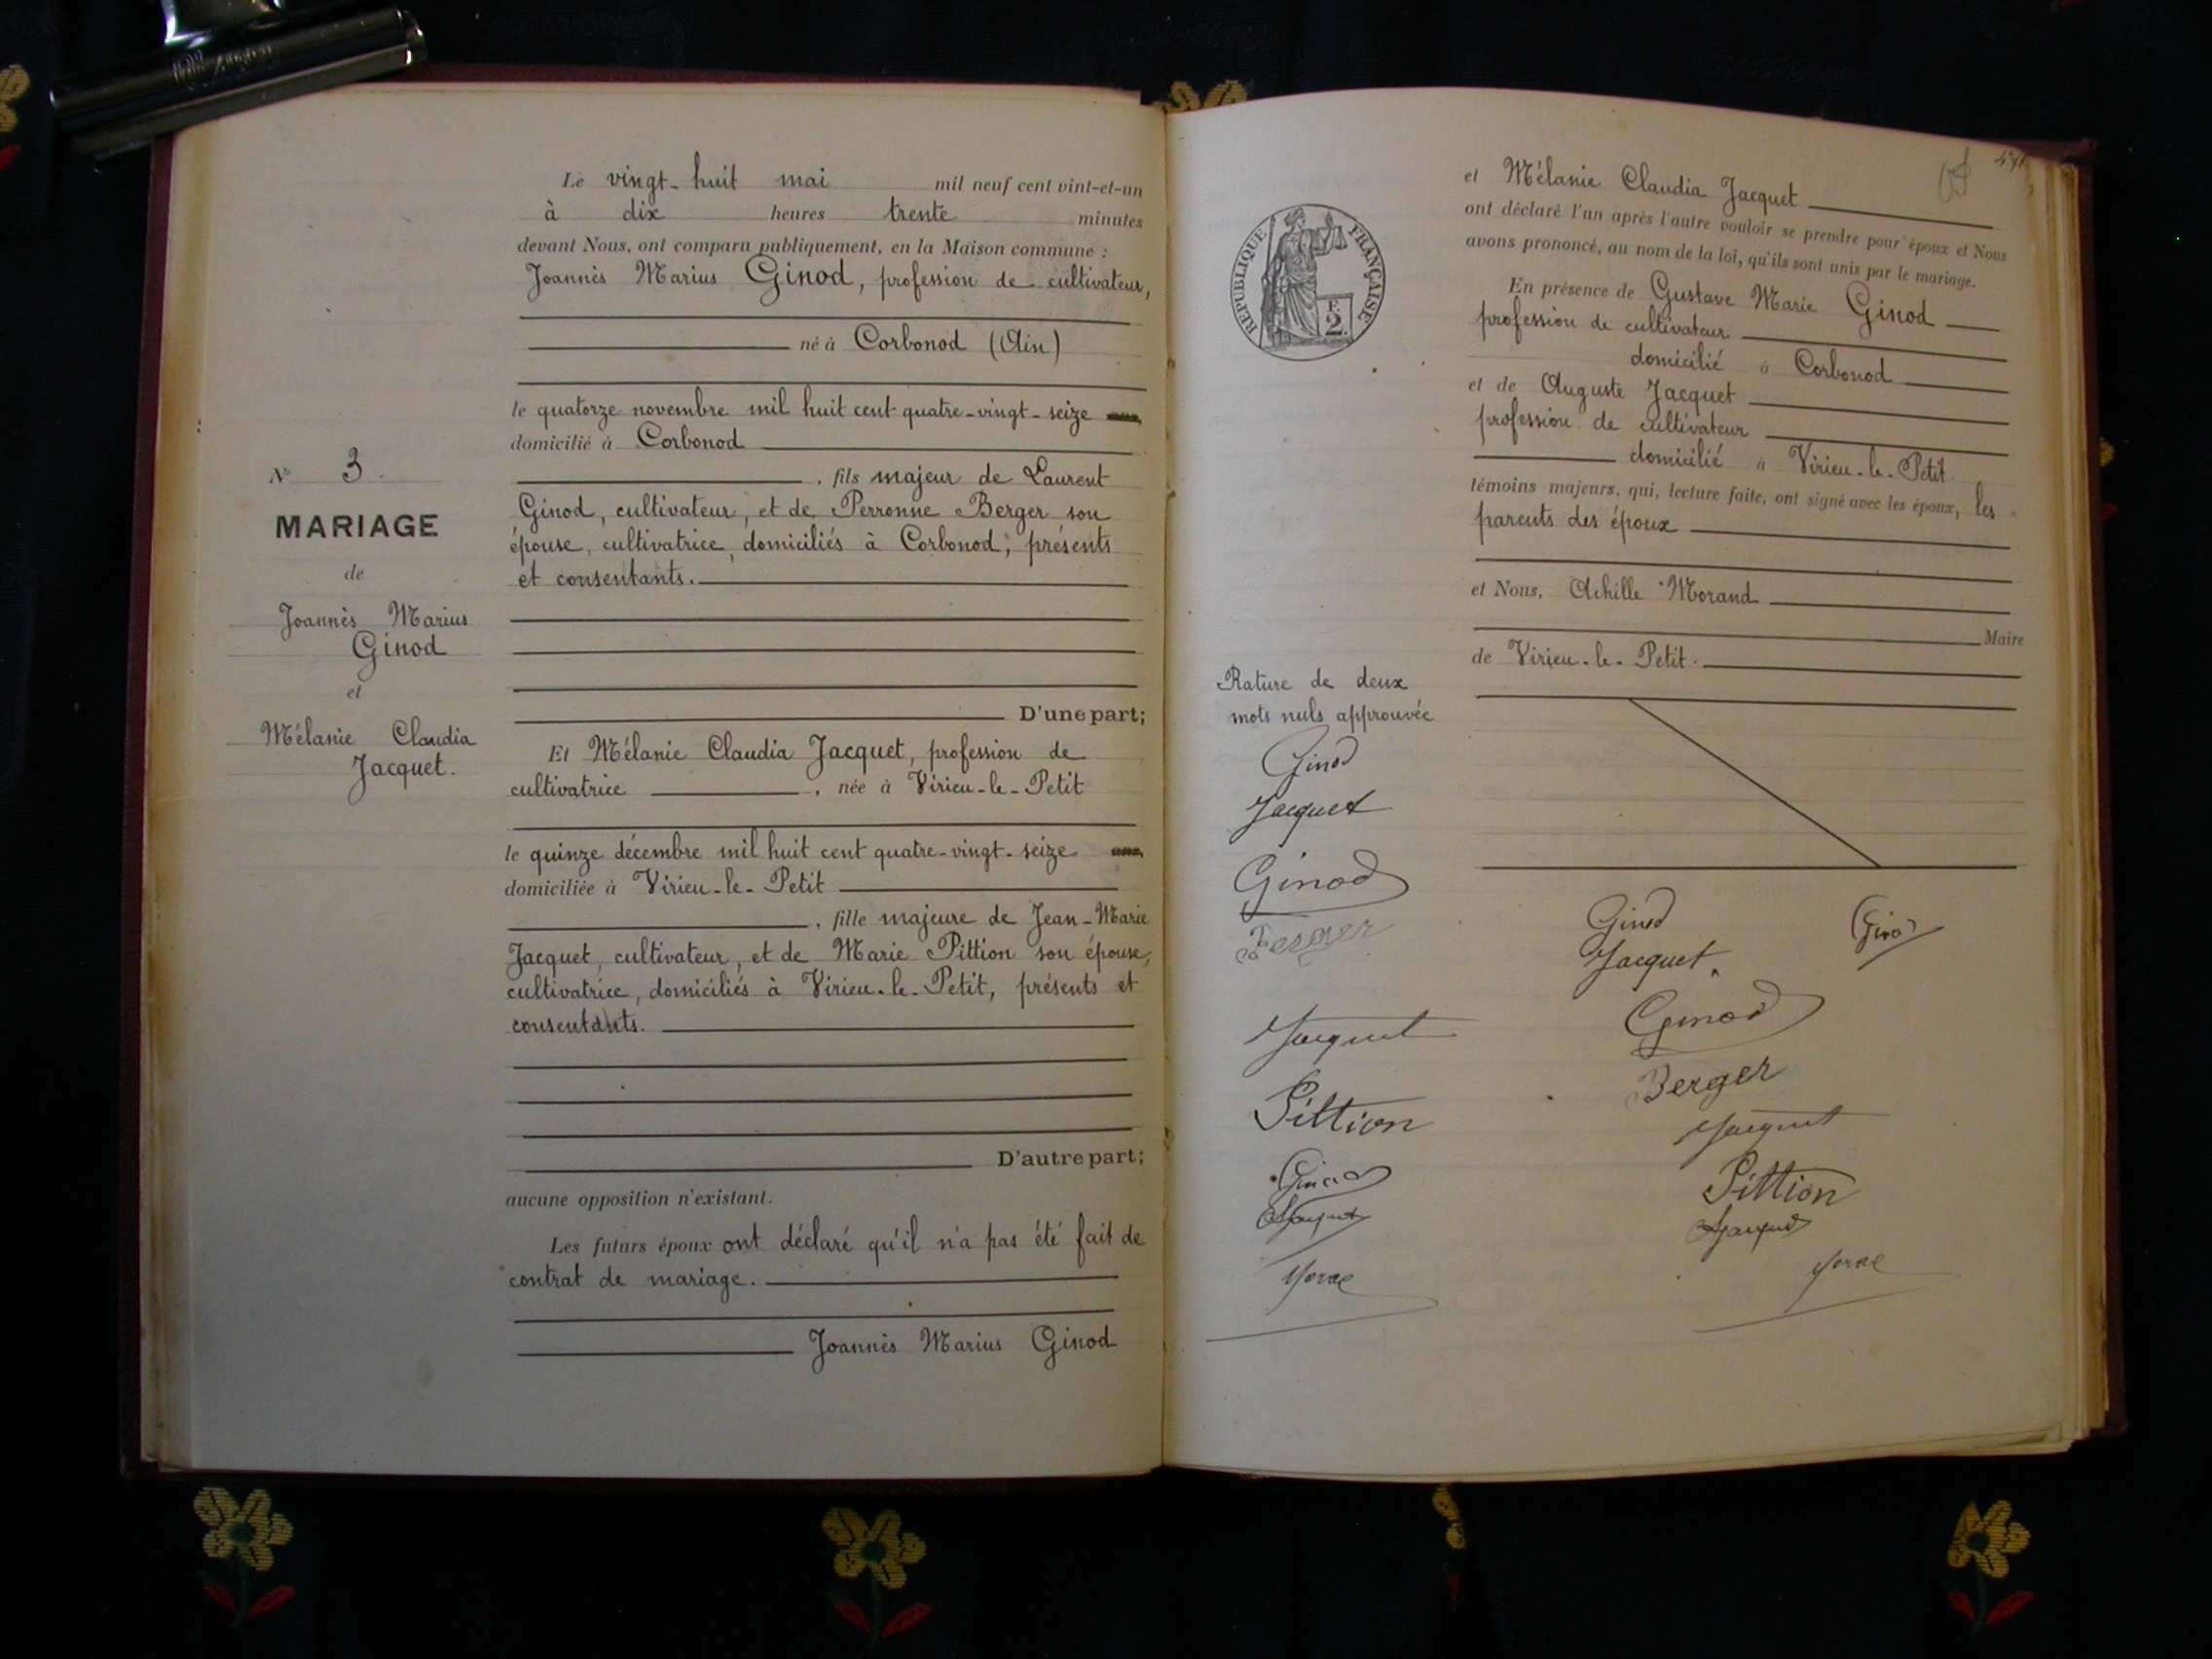 N° 3.
MARIAGE
de
Joannès Marius
Ginod
et
Mélanie Claudia
Jacquet.
Le vingt-huit mai mil neuf cent vint-et-un
à dix heures trente minutes
devant Nous, ont comparu publiquement, en la Maison commune :
Joannès Marius Ginod, profession de cultivateur,
né à Corbonod (Ain)
le quatorze novembre mil huit cent quatre-vingt-seize
domicilié à Corbonod
, fils majeur de Laurent
Ginod, cultivateur, et de Perronne Berger son
épouse, cultivatrice, domiciliés à Corbonod, présents
et consentants.
D'une part;
Et Mélanie Claudia Jacquet, profession de
cultivatrice , née à Virieu-le-Petit
le quinze décembre mil huit cent quatre-vingt-seize
domiciliée à Virieu-le-Petit
, fille majeure de Jean-Marie
Jacquet, cultivateur, et de Marie Pittion son épouse,
cultivatrice, domiciliés à Virieu-le-Petit, présents et
consentants.
D'autre part;
aucune opposition n'existant.
Les futurs époux ont déclaré qu'il n'a pas été fait de
contrat de mariage.
Joannès Marius Ginod
REPUBLIQUE FRANÇAISE
F.
2.
et Mélanie Claudia Jacquet
ont déclaré l'un après l'autre vouloir se prendre pour époux et Nous
avons prononcé, au nom de la loi, qu'ils sont unis par le mariage.
En présence de Gustave Marie Ginod
profession de cultivateur
domicilié à Corbonod
et de Auguste Jacquet
profession de cultivateur
domicilié à Virieu-le-Petit
témoins majeurs, qui, lecture faite, ont signé avec les époux, les
parents des époux
et Nous, Achille Morand
Maire
de Virieu-le-Petit.
Rature de deux
mots nuls approuvée
Ginod
Jacquet
Ginod
Berger
Jacquet
Pittion
Ginod
Jacquet
Ginod
Jacquet
Ginod
Berger
Jacquet
Pittion
Jacquet